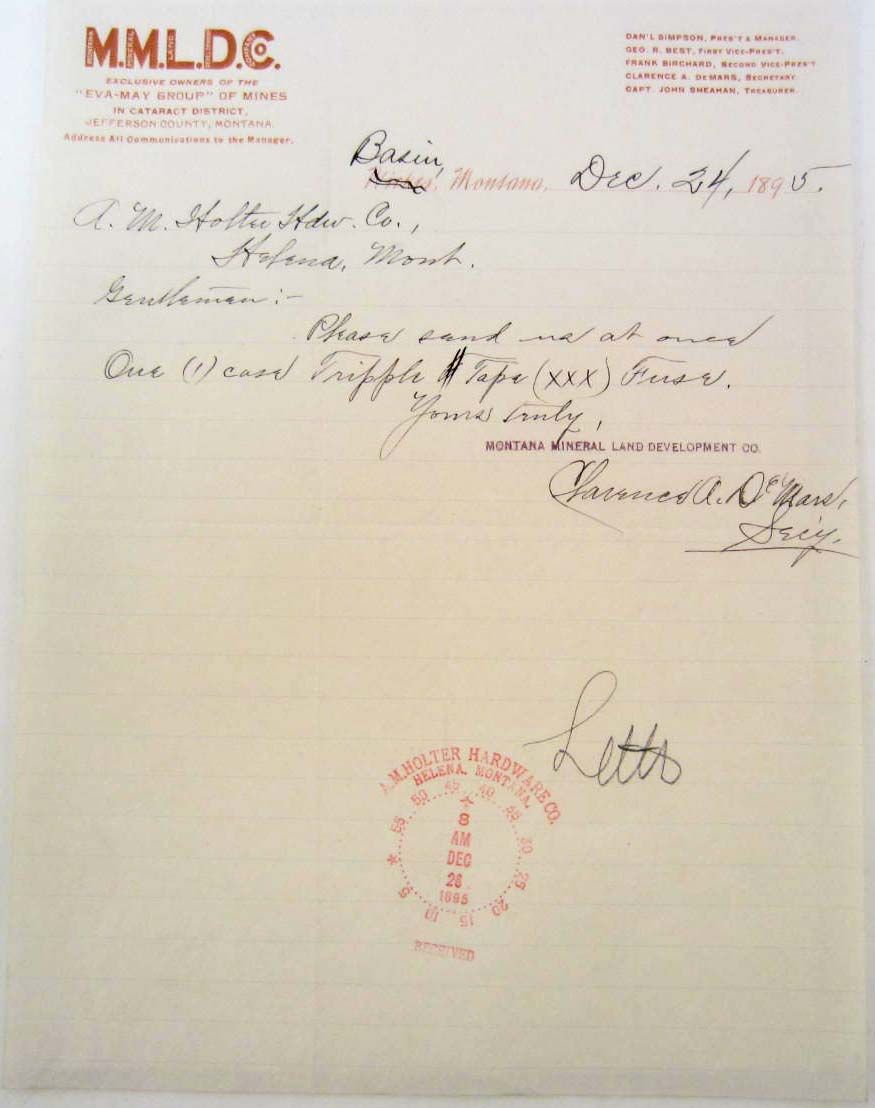 M.M.L.D.Co.
MONTANA MINERAL LAND DEVELOPMENT COMPANY
EXCLUSIVE OWNERS OF THE
"EVA-MAY GROUP" OF MINES
IN CATARACT DISTRICT,
JEFFERSON COUNTY, MONTANA.
Address All Communications to the Manager.
DAN'L SIMPSON, PRES'T & MANAGER.
GEO. R. BEST, FIRST VICE-PRES'T.
FRANK BIRCHARD, SECOND VICE-PRES'T
CLARENCE A. DEMARS, SECRETARY.
CAPT. JOHN SHEAHAN, TREASURER.
Basin,
Wickes, Montana, Dec. 24, 1895.
A. M. Holter Hdw. Co.,
Helena, Mont.
Gentlemen:-
Please send us at once
One (1) case Tripple Tape (XXX) Fuse.
Yours truly,
MONTANA MINERAL LAND DEVELOPMENT CO.
Clarence A. DeMars,
Sec'y.
A.M. HOLTER HARDWARE CO.
HELENA, MONTANA.
5 10 15 20 25 30 35 40 45 50 55
8
AM
DEC
26
1895
RECEIVED